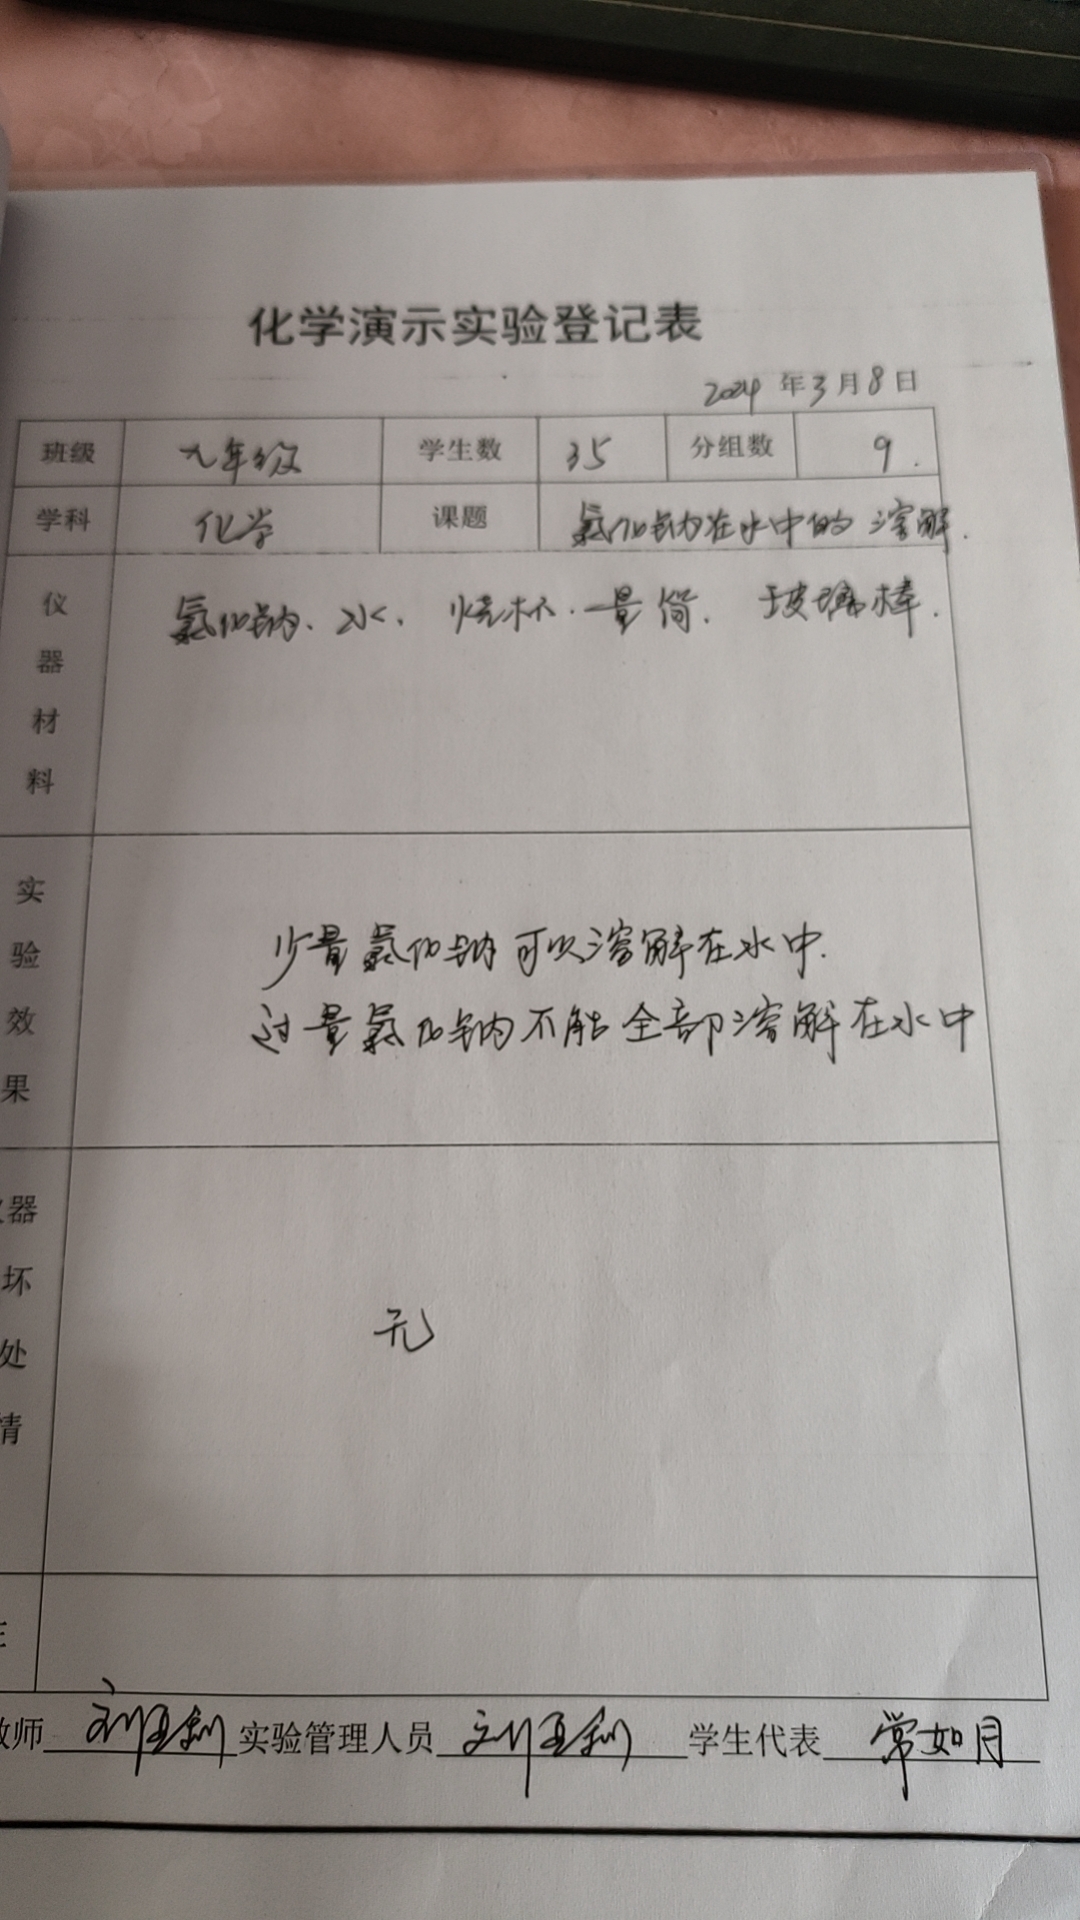 化学演示实验登记表
2024年3月8日
班级 九年级 学生数 35 分组数 9.
学科 化学 课题 氯化钠在水中的溶解.
仪器材料 氯化钠、水、烧杯.量筒. 玻璃棒.
实验效果 少量氯化钠可以溶解在水中.
过量氯化钠不能全部溶解在水中
器坏处情 无
师 刘亚利 实验管理人员 刘亚利 学生代表 常如月